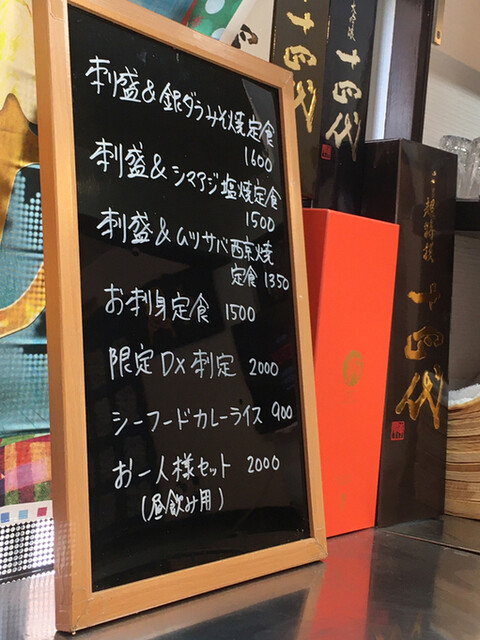 刺盛&銀ダラみそ焼定食
1600
刺盛&シマアジ塩焼定食
1500
刺盛&ムツサバ西京焼
定食 1350
お刺身定食 1500
限定DX刺定 2000
シーフードカレーライス 900
お一人様セット 2000
(昼飲み用)
十四代
十四代
十四代